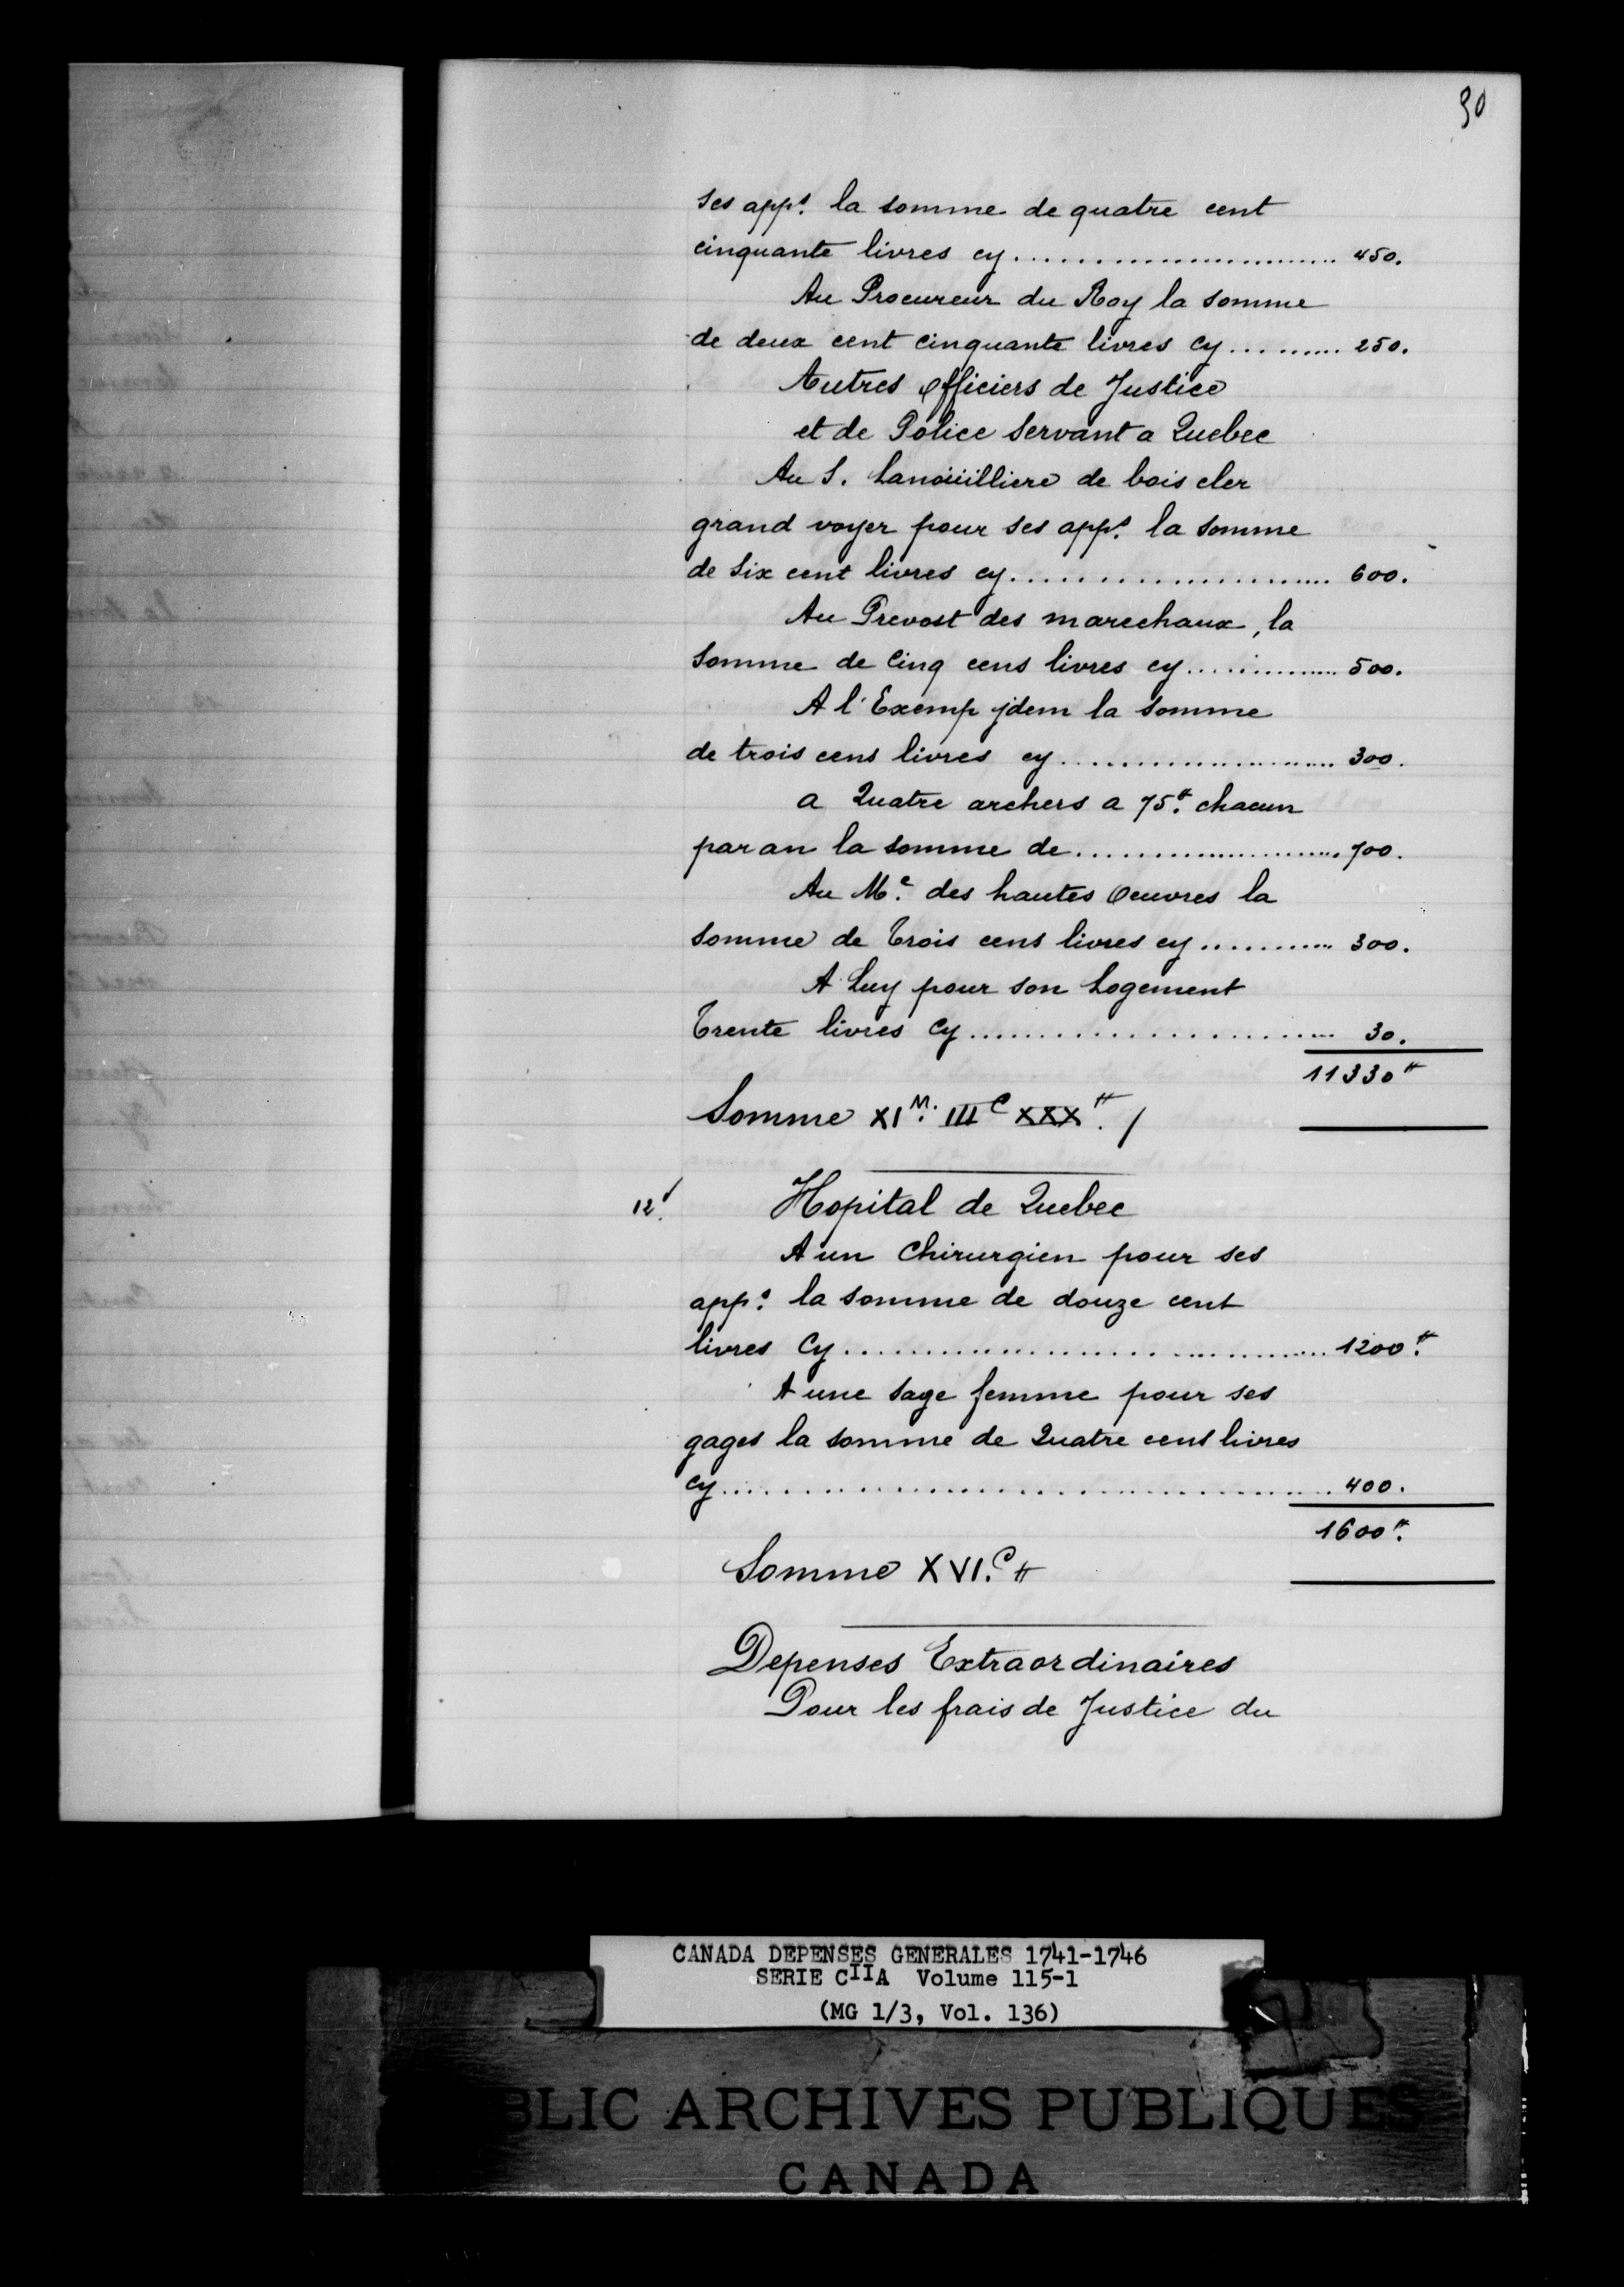 90
ses app.s la somme de quatre cent
cinquante livres cy........................ 450.
Au Procureur du Roy la somme
de deux cent cinquante livres cy.......... 250.
Autres officiers de Justice
et de Police servant a Quebec
Au S. Lanoüilliere de bois cler
grand voyer pour ses app.s la somme
de six cent livres cy........................ 600.
Au Prevost des marechaux, la
somme de Cinq cens livres cy............... 500.
A l'Exemp jdem la somme
de trois cens livres cy...................... 300.
a Quatre archers a 75.tt chacun
par an la somme de..................... 700.
Au M.e des hautes Oeuvres la
somme de Trois cens livres cy............ 300.
A Luy pour son Logement
Trente livres Cy......................... 30.
11330 tt
Somme XI M. III C XXX tt. /
12.
Hopital de Quebec
A un Chirurgien pour ses
app.s la somme de douze cent
livres Cy................................. 1200.tt
A une sage femme pour ses
gages la somme de Quatre cens livres
cy....................................... 400.
1600.tt
Somme XVI.C tt
Depenses Extraordinaires
Pour les frais de Justice du
CANADA DEPENSES GENERALES 1741-1746
SERIE CIIA Volume 115-1
(MG 1/3, Vol. 136)
BLIC ARCHIVES PUBLIQUES
CANADA